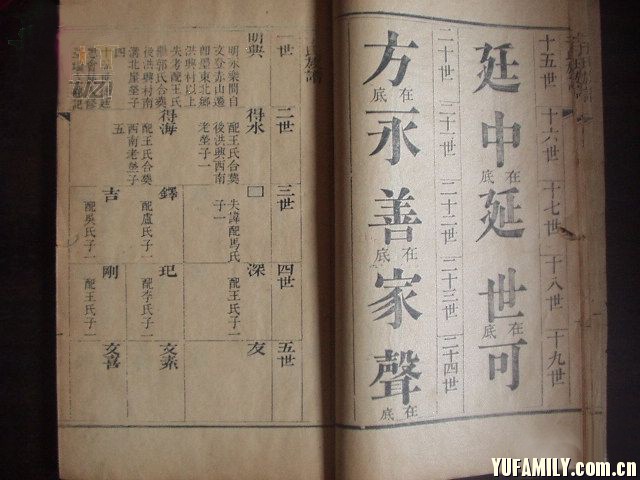 十五世 十六世 十七世 十八世 十九世
廷 中 延 世 可
在底 在底
二十世 二十一世 二十二世 二十三世 二十四世
方 永 善 家 聲
在底 在底 在底
一世 二世 三世 四世 五世
明興
明永樂間自
文登赤山遷
卽墨東北鄉
洪興村以上
失考配王氏
繼郭氏合葬
後洪興村南
溝北屋塋子
四
得永
配王氏合葬
後洪興西南
老塋子一
得海
配王氏合葬
西南老塋子
五
□
失諱配馬氏
子一
鐸
配盧氏子一
吉
配吳氏子一
深
配王氏子一
玘
配李氏子一
剛
配王氏子一
友
文素
文喜
YUFAMILY.com.cn